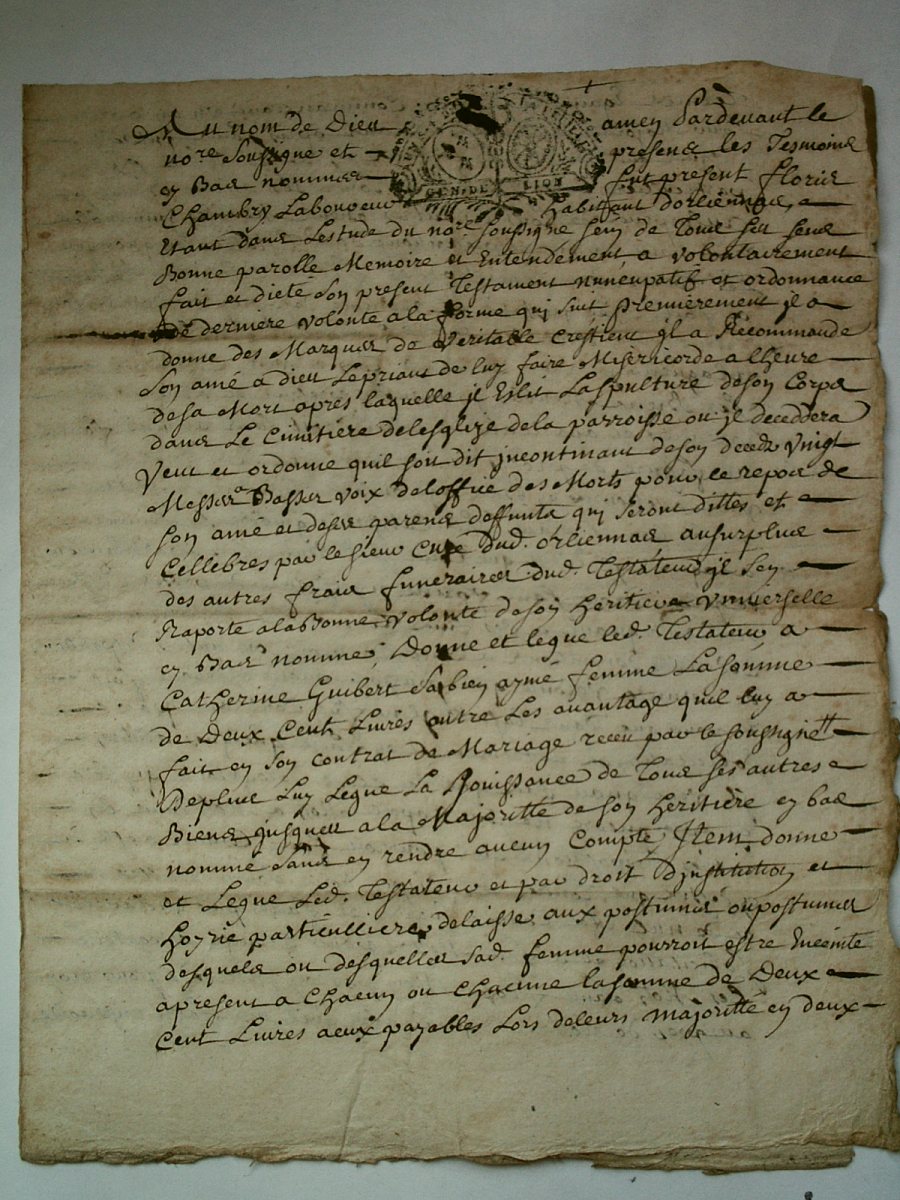 Au nom de Dieu amen Pardevant le
no.re Soussigne et presence les Tesmoins
en Bas nommes fut present floris
GEN. DE LION
Chambry Laboureur habitant d'orliennas,
Etant dans Lestude du no.re soussigne sein de Tous ses sens
Bonne parolle Memoire et Entendement a volontairement
fait et dicté son present Testament nuncupatif et ordonnance
de derniere volonte a la forme qui suit premierement il a
donne des Marques de Veritable Crestient il a Recommande
son ame a dieu Le priant de luy faire Misericorde a lheure
de sa Mort apres laquelle il Eslit La spulture de son Corps
dans Le Cimitiere de lesglize de la parroisse ou il decedera
Veut et ordonne quil soit dit incontinant de son deceds vingt
Messes Basses voix de loffice des Morts pour le repos de
son amé et de ses parens deffunts qui seront dittes et
Cellebres par le sieur Curé dud. orliennas au surplus
des autres frais funeraires dud. Testateur il sen
Raporte a la Bonne volonte de son heritiere vniverselle
en Bas nommé, Donne et legue led. Testateur a
Catherine Guibert sa bien aymé femme La somme
de Deux Cent Livres outre Les avantage quil luy a
fait en son contrat de Mariage receu par le soussigne
De plus Luy Legue La Jouissance de Tous ses autres
Biens jusques a la Majoritté de son heritiere en bas
nommé sans en rendre aucun Compte, Item donne
et Legue Led. Testateur et par droit D'institution et
hoyrie particulliere delaisse aux postumes ou postumes
desquels ou desquelles sad. femme pourroit estre Enceinte
a present a Chacun ou Chacune la somme de Deux
Cent Livres a eux payables Lors de leurs majoritté en deux